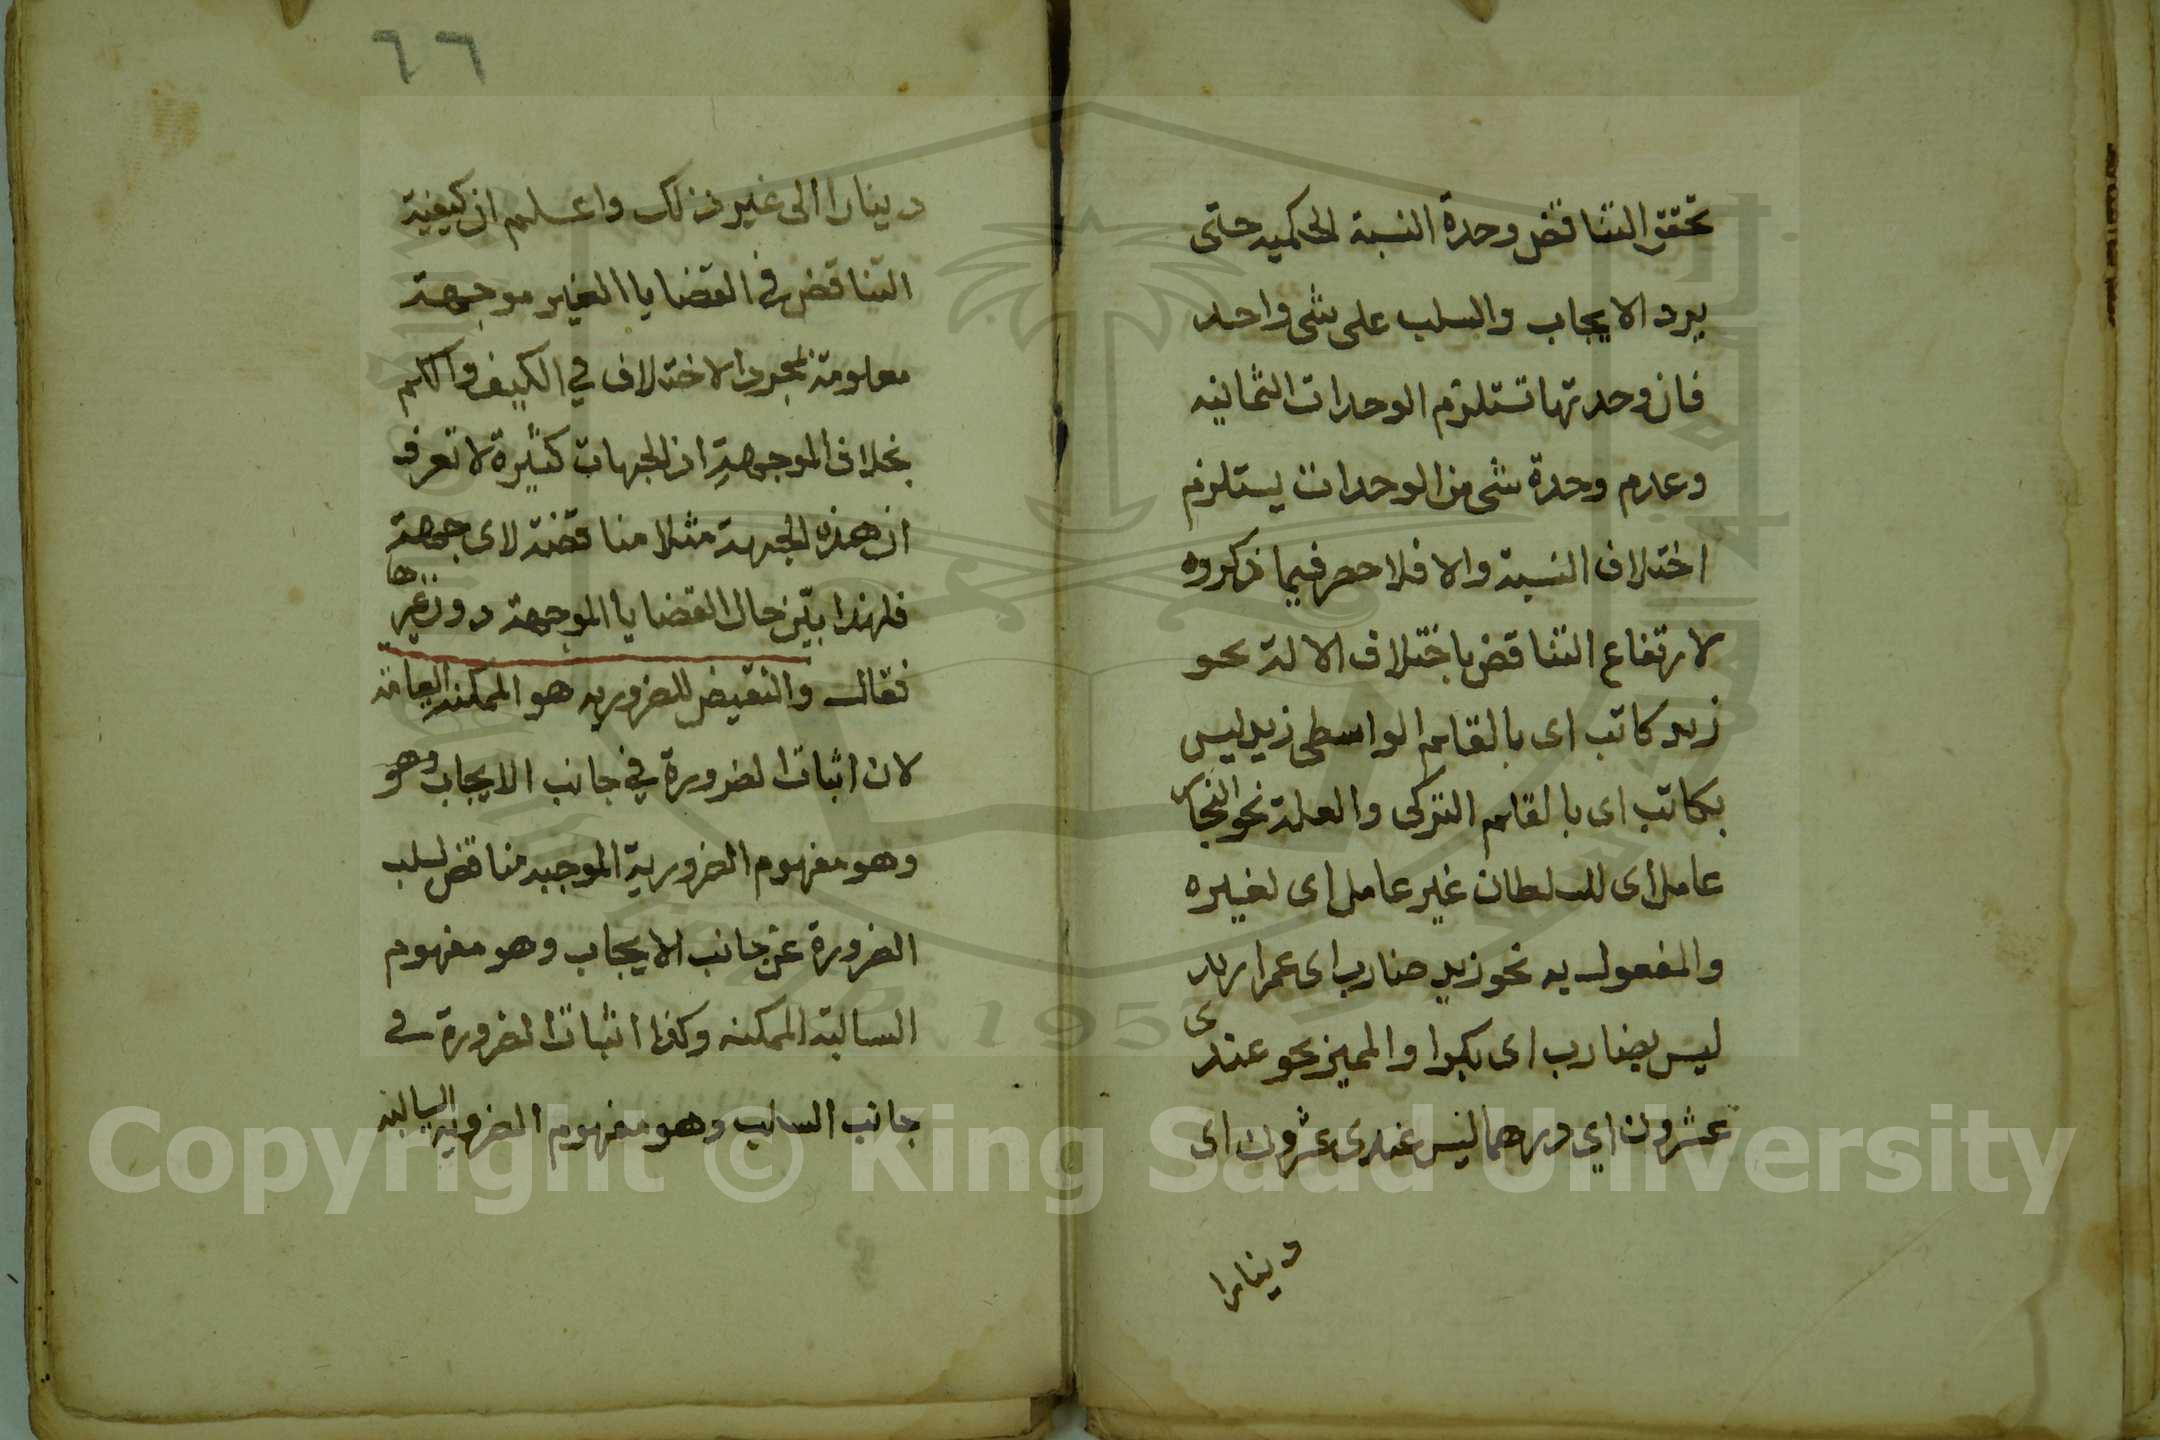 تحقق التناقض وحدة النسبة الحكميه حتى
يرد الايجاب والسلب على شى واحد
فان وحدتها تستلزم الوحدات الثمانيه
وعدم وحدة شى من الوحدات يستلزم
اختلاف النسبة والا فلا حصر فيما ذكروه
لارتفاع التناقض باختلاف الالة نحو
زيد كاتب اى بالقلم الواسطى زيد ليس
بكاتب اى بالقلم التركى والعلة نحو النجار
عامل اى للسلطان غير عامل اى لغيره
والمفعول به نحو زيد ضارب اى عمرا زيد
ليس بضارب اى بكرا والمميز نحو عندى
عشرون اي درهما ليس عندى عشرون اى
دينارا
٦٦
دينارا الى غير ذلك واعلم ان كيفية
التناقض فى القضايا الغير موجهة
معلومة بمجرد الاختلاف في الكيف والكم
بخلاف الموجهة اذ الجهات كثيرة لا تعرف
ان هذه الجهة مثلا مناقضة لاى جهة
فلهذا بيّن حال القضايا الموجهة دون غيرها
فقال والنقيض للضروريه هو الممكنة العامة
لان اثبات الضرورة في جانب الايجاب وهو
وهو مفهوم الضرورية الموجبه مناقض لسلب
الضرورة عن جانب الايجاب وهو مفهوم
السالبة الممكنه وكذا اثبات الضرورة فى
جانب السلب وهو مفهوم الضرورية السالبة
1957
Copyright © King Saud University